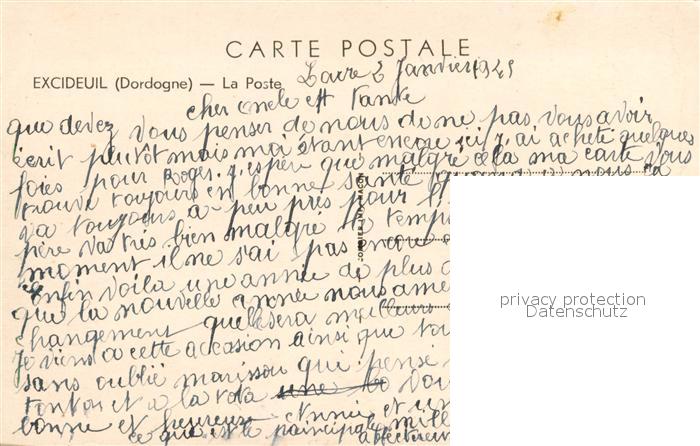 CARTE POSTALE
EXCIDEUIL (Dordogne) — La Poste
2 Janvier 1945
cher oncle est tante
que devez vous penser de nous de ne pas vous avoir
écrit plutôt mais étant encore ici j'ai acheté quelques
foies pour Roger. j'espère que malgré cela ma carte vous
trouve toujours en bonne santé quand a nous ça
va toujours a peu près pour
père va très bien malgré le temps
moment il ne s'ai pas encore
enfin voila une année de plus
que la nouvelle année nous amè
changement quelle sera meilleurs
Je viens a cette occasion ainsi que tou
sans oublié marissou qui pense
tonton et a la tata vou
bonne et heureuse année et un
ce que est le principal mill
affectueu
privacy protection
Datenschutz